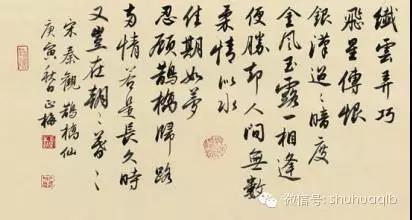 纖雲弄巧
飛星傳恨
銀漢迢〻暗度
金風玉露一相逢
便勝却人間無數
柔情似水
佳期如夢
忍顧鵲橋歸路
兩情若是長久時
又豈在朝〻暮〻
宋秦觀 鵲橋仙
庚寅秋日正梅
微信号: shuhuaqlb